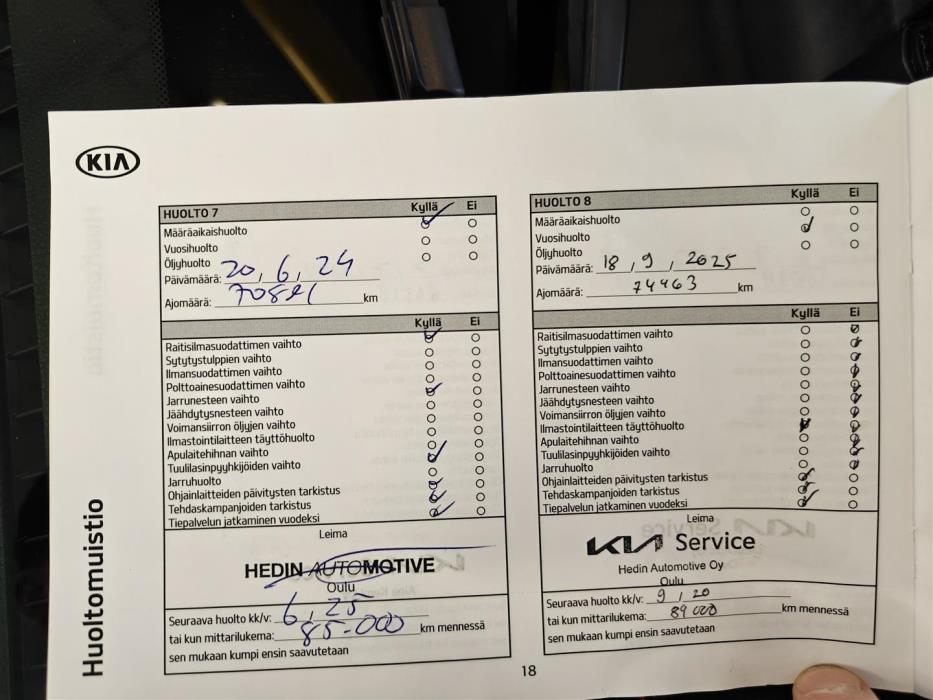 KIA
Huoltomuistio
HUOLTO 7 Kyllä Ei
Määräaikaishuolto
Vuosihuolto
Öljyhuolto
Päivämäärä: 20, 6, 24
Ajomäärä: km
Kyllä Ei
Raitisilmasuodattimen vaihto
Sytytystulppien vaihto
Ilmansuodattimen vaihto
Polttoainesuodattimen vaihto
Jarrunesteen vaihto
Jäähdytysnesteen vaihto
Voimansiirron öljyjen vaihto
Ilmastointilaitteen täyttöhuolto
Apulaitehihnan vaihto
Tuulilasinpyyhkijöiden vaihto
Jarruhuolto
Ohjainlaitteiden päivitysten tarkistus
Tehdaskampanjoiden tarkistus
Tiepalvelun jatkaminen vuodeksi
Leima
HEDIN AUTOMOTIVE
Oulu
Seuraava huolto kk/v: 6, 25
tai kun mittarilukema: 85-000 km mennessä
sen mukaan kumpi ensin saavutetaan
HUOLTO 8 Kyllä Ei
Määräaikaishuolto
Vuosihuolto
Öljyhuolto
Päivämäärä: 18, 9, 2025
Ajomäärä: 74463 km
Kyllä Ei
Raitisilmasuodattimen vaihto
Sytytystulppien vaihto
Ilmansuodattimen vaihto
Polttoainesuodattimen vaihto
Jarrunesteen vaihto
Jäähdytysnesteen vaihto
Voimansiirron öljyjen vaihto
Ilmastointilaitteen täyttöhuolto
Apulaitehihnan vaihto
Tuulilasinpyyhkijöiden vaihto
Jarruhuolto
Ohjainlaitteiden päivitysten tarkistus
Tehdaskampanjoiden tarkistus
Tiepalvelun jatkaminen vuodeksi
Leima
KIA Service
Hedin Automotive Oy
Oulu
Seuraava huolto kk/v: 9, 20
tai kun mittarilukema: 89 000 km mennessä
sen mukaan kumpi ensin saavutetaan
18